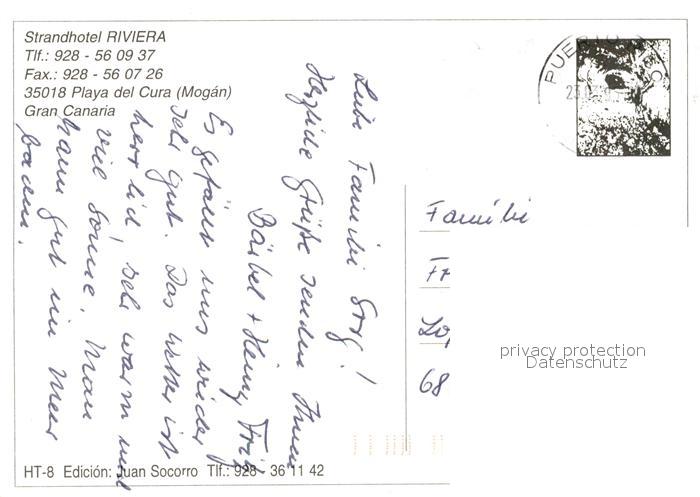 Strandhotel RIVIERA
Tlf.: 928 - 56 09 37
Fax.: 928 - 56 07 26
35018 Playa del Cura (Mogán)
Gran Canaria
Liebe Familie Sorg!
Herzliche Grüße senden Ihnen
Bärbel + Heinz
Es gefällt uns wieder
sehr gut. Das Wetter ist
herrlich, sehr warm und
viel Sonne. Man
kann gut im Meer
baden.
PUERTO
Familie
68
privacy protection
Datenschutz
HT-8 Edición: Juan Socorro Tlf.: 928 - 36 11 42